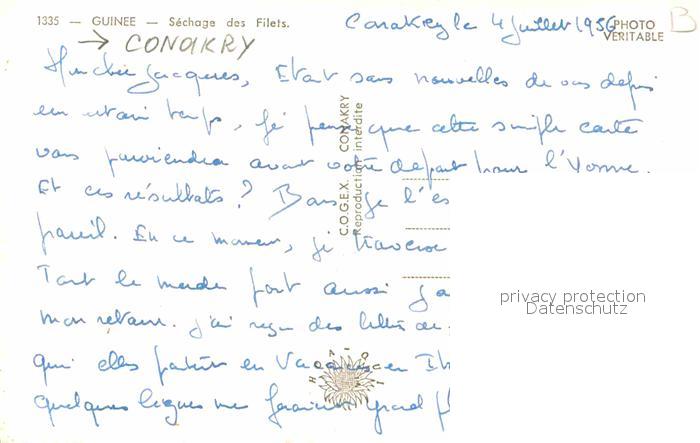 1335 — GUINEE — Séchage des Filets.
Conakry le 4 juillet 1956
PHOTO VERITABLE
B
→ CONAKRY
Mon cher Jacques, Etant sans nouvelles de vous depuis
un certain temps, je pense que cette simple carte
vous parviendra avant votre départ pour l'Yonne.
Et ces résultats? Bons, je l'es
pareil. En ce moment, je traverse
Tout le monde fait aussi
mon retour. j'ai reçu des lettres de
qui elles partir en Vacances en
Quelques lignes me feraient grand
C.O.G.E.X. CONAKRY
Reproduction interdite
privacy protection
Datenschutz